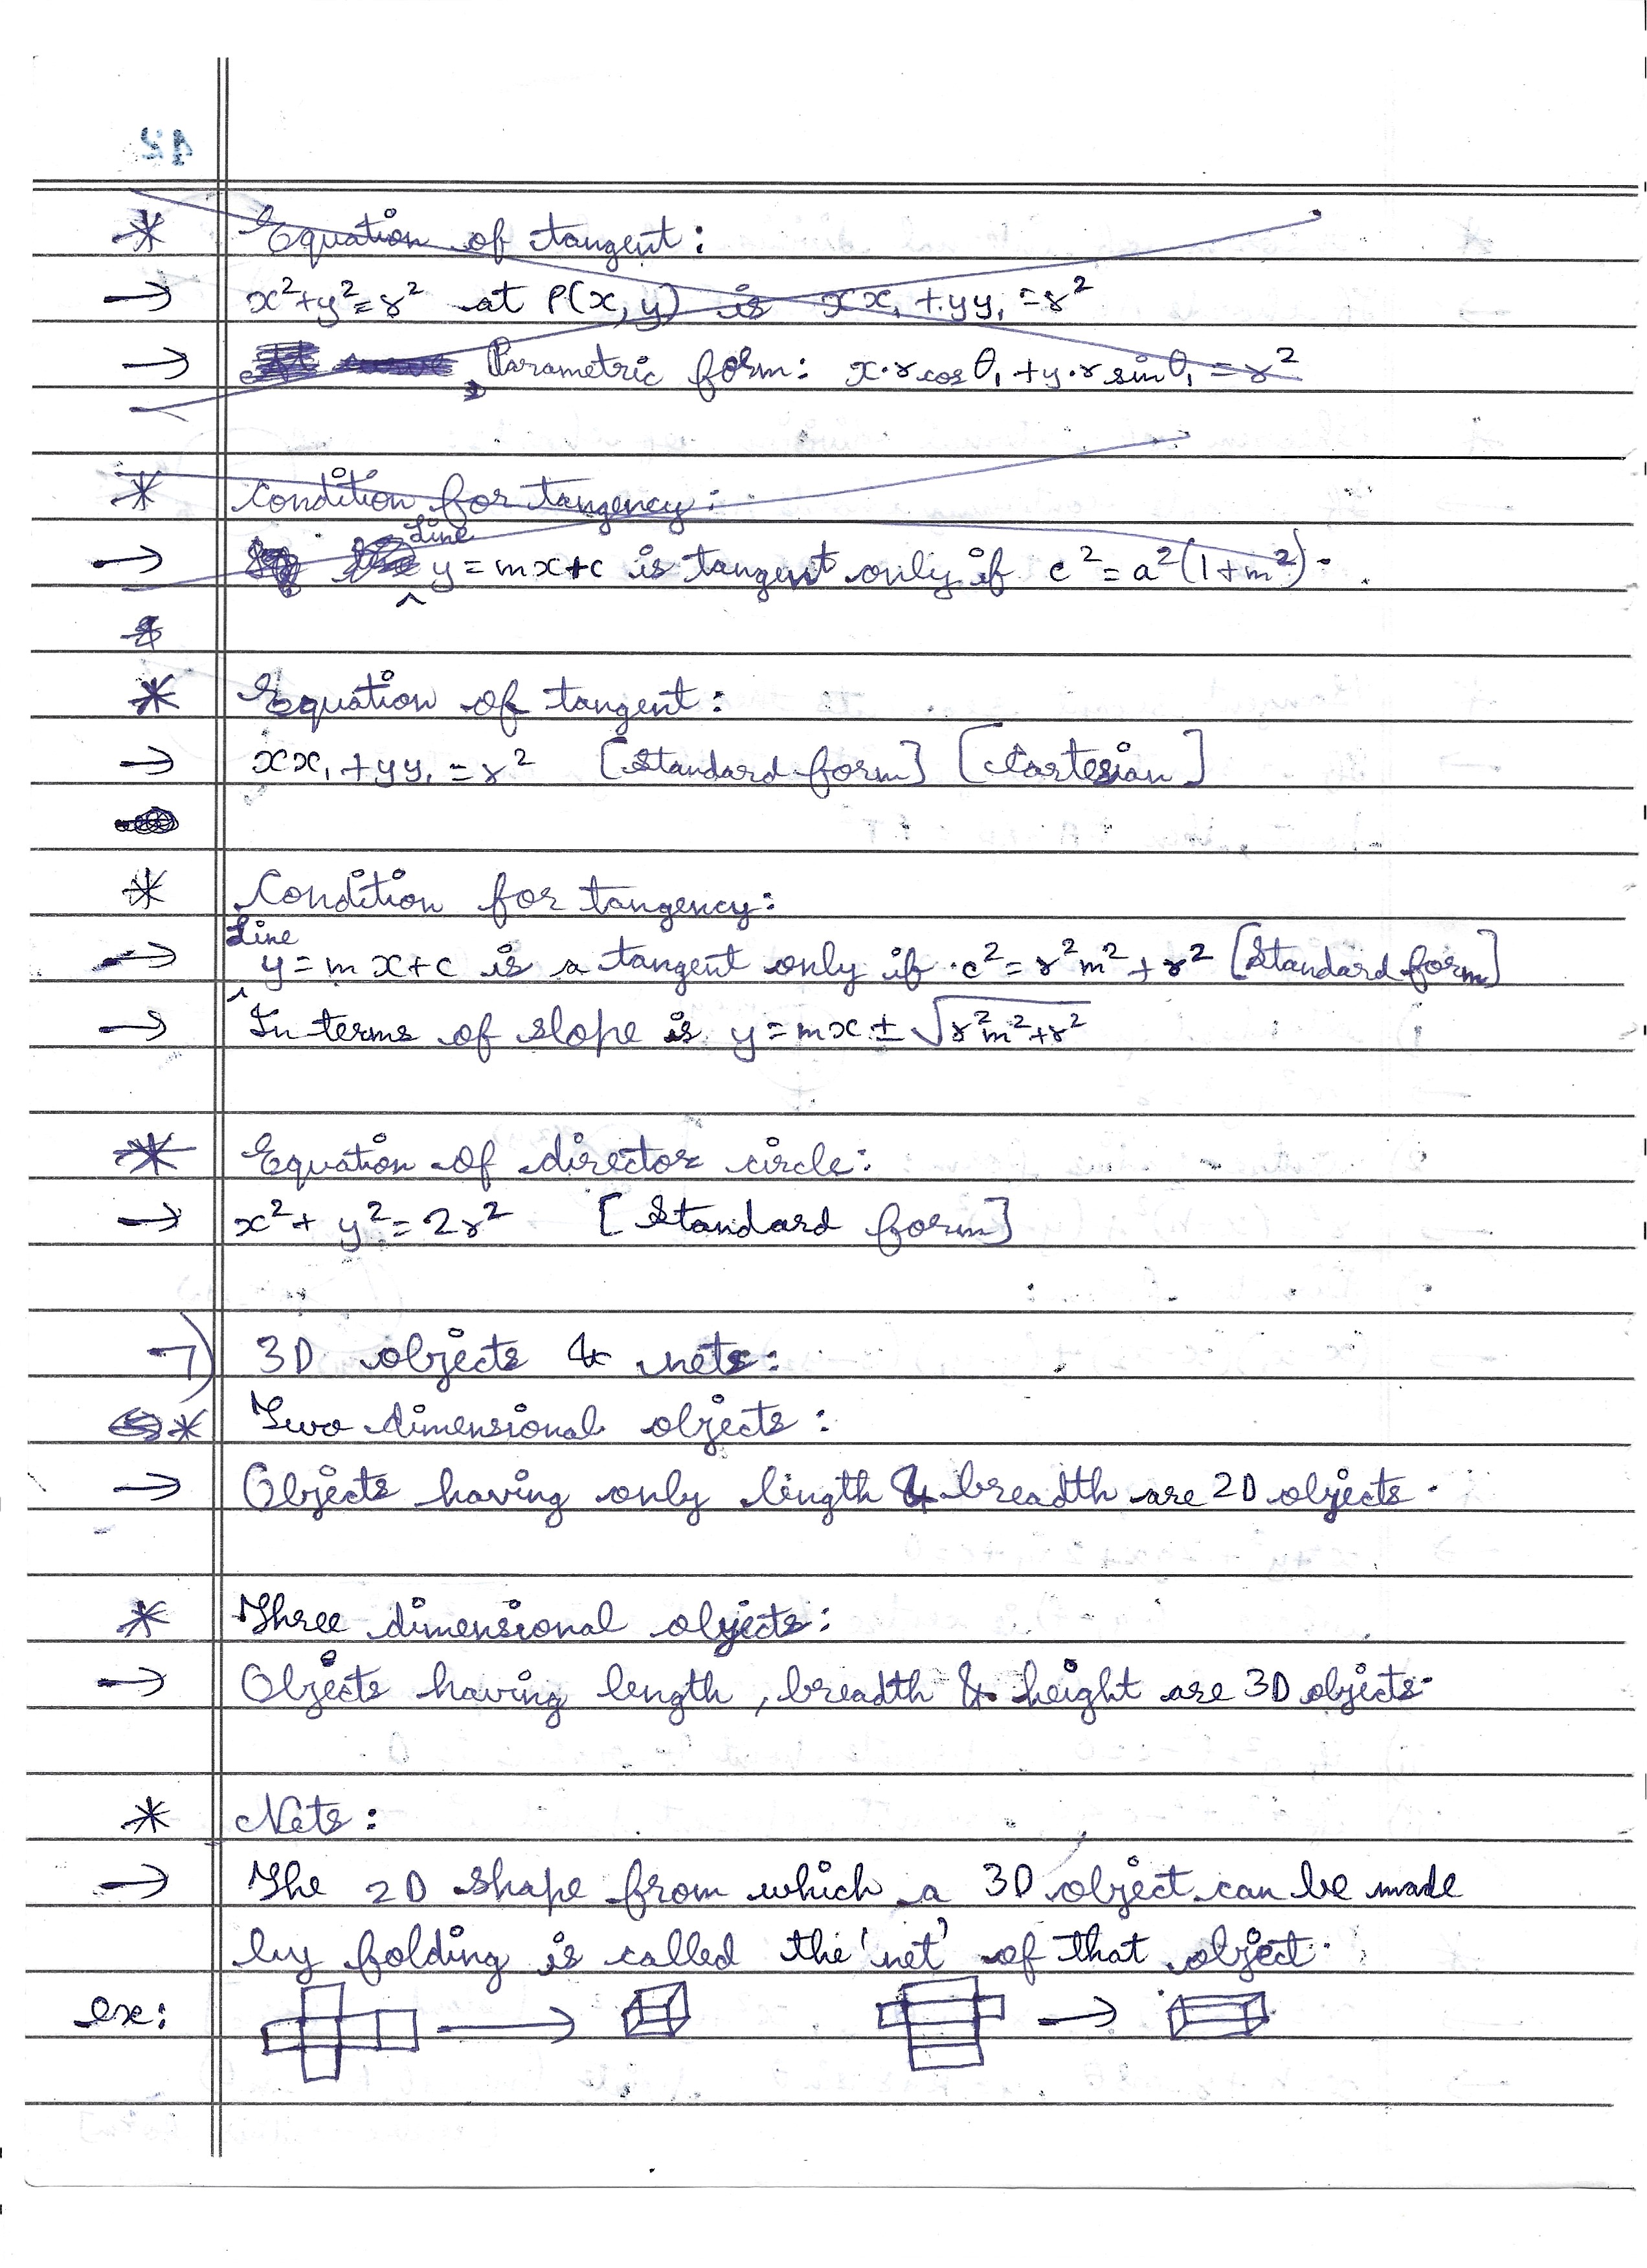 * Equation of tangent:
→ x²+y²=r² at P(x,y) is xx₁+yy₁=r²
→ Parametric form: x·r cos θ₁+y·r sin θ₁=r²
* Condition for tangency:
→ Line y=mx+c is tangent only if c²=a²(1+m²).
* Equation of tangent:
→ xx₁+yy₁=r² [Standard form] [Cartesian]
* Condition for tangency:
→ Line y=mx+c is a tangent only if c²=r²m²+r² [Standard form]
→ In terms of slope is y=mx±√r²m²+r²
* Equation of director circle:
→ x²+y²=2r² [Standard form]
7) 3D objects & nets:
* Two dimensional objects:
→ Objects having only length & breadth are 2D objects.
* Three dimensional objects:
→ Objects having length, breadth & height are 3D objects.
* Nets:
→ The 2D shape from which a 3D object can be made
by folding is called the 'net' of that object.
ex: → →